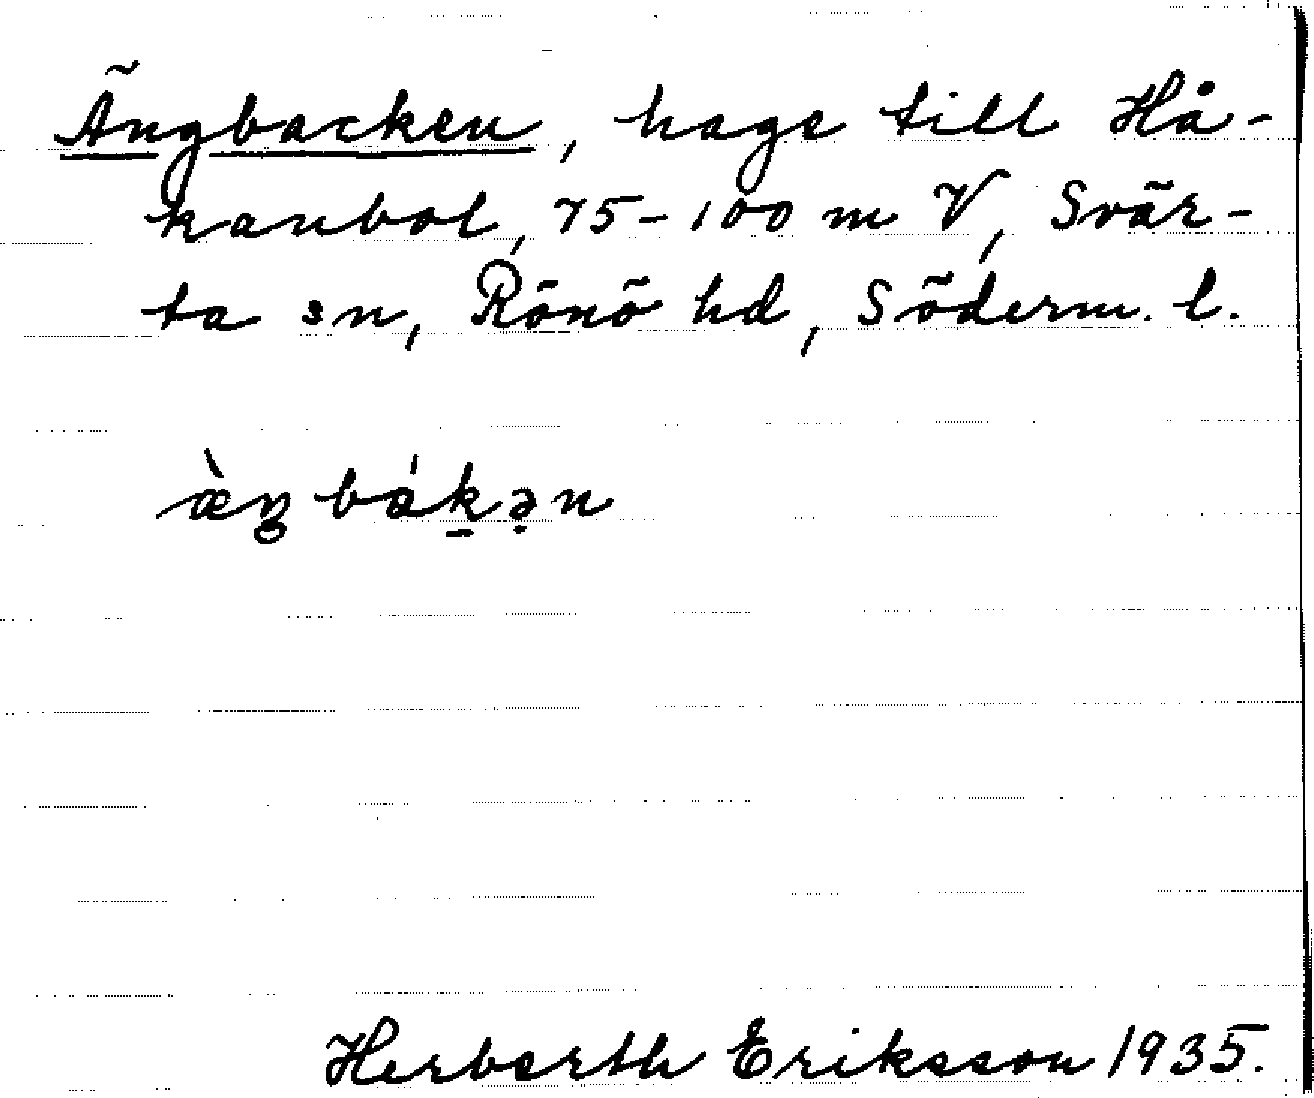 Ängbacken, hage till Hå-
kanbol, 75-100 m V, Svär-
ta sn, Rönö hd, Söderm. l.
æ̀ŋbákən
Herberth Eriksson 1935.